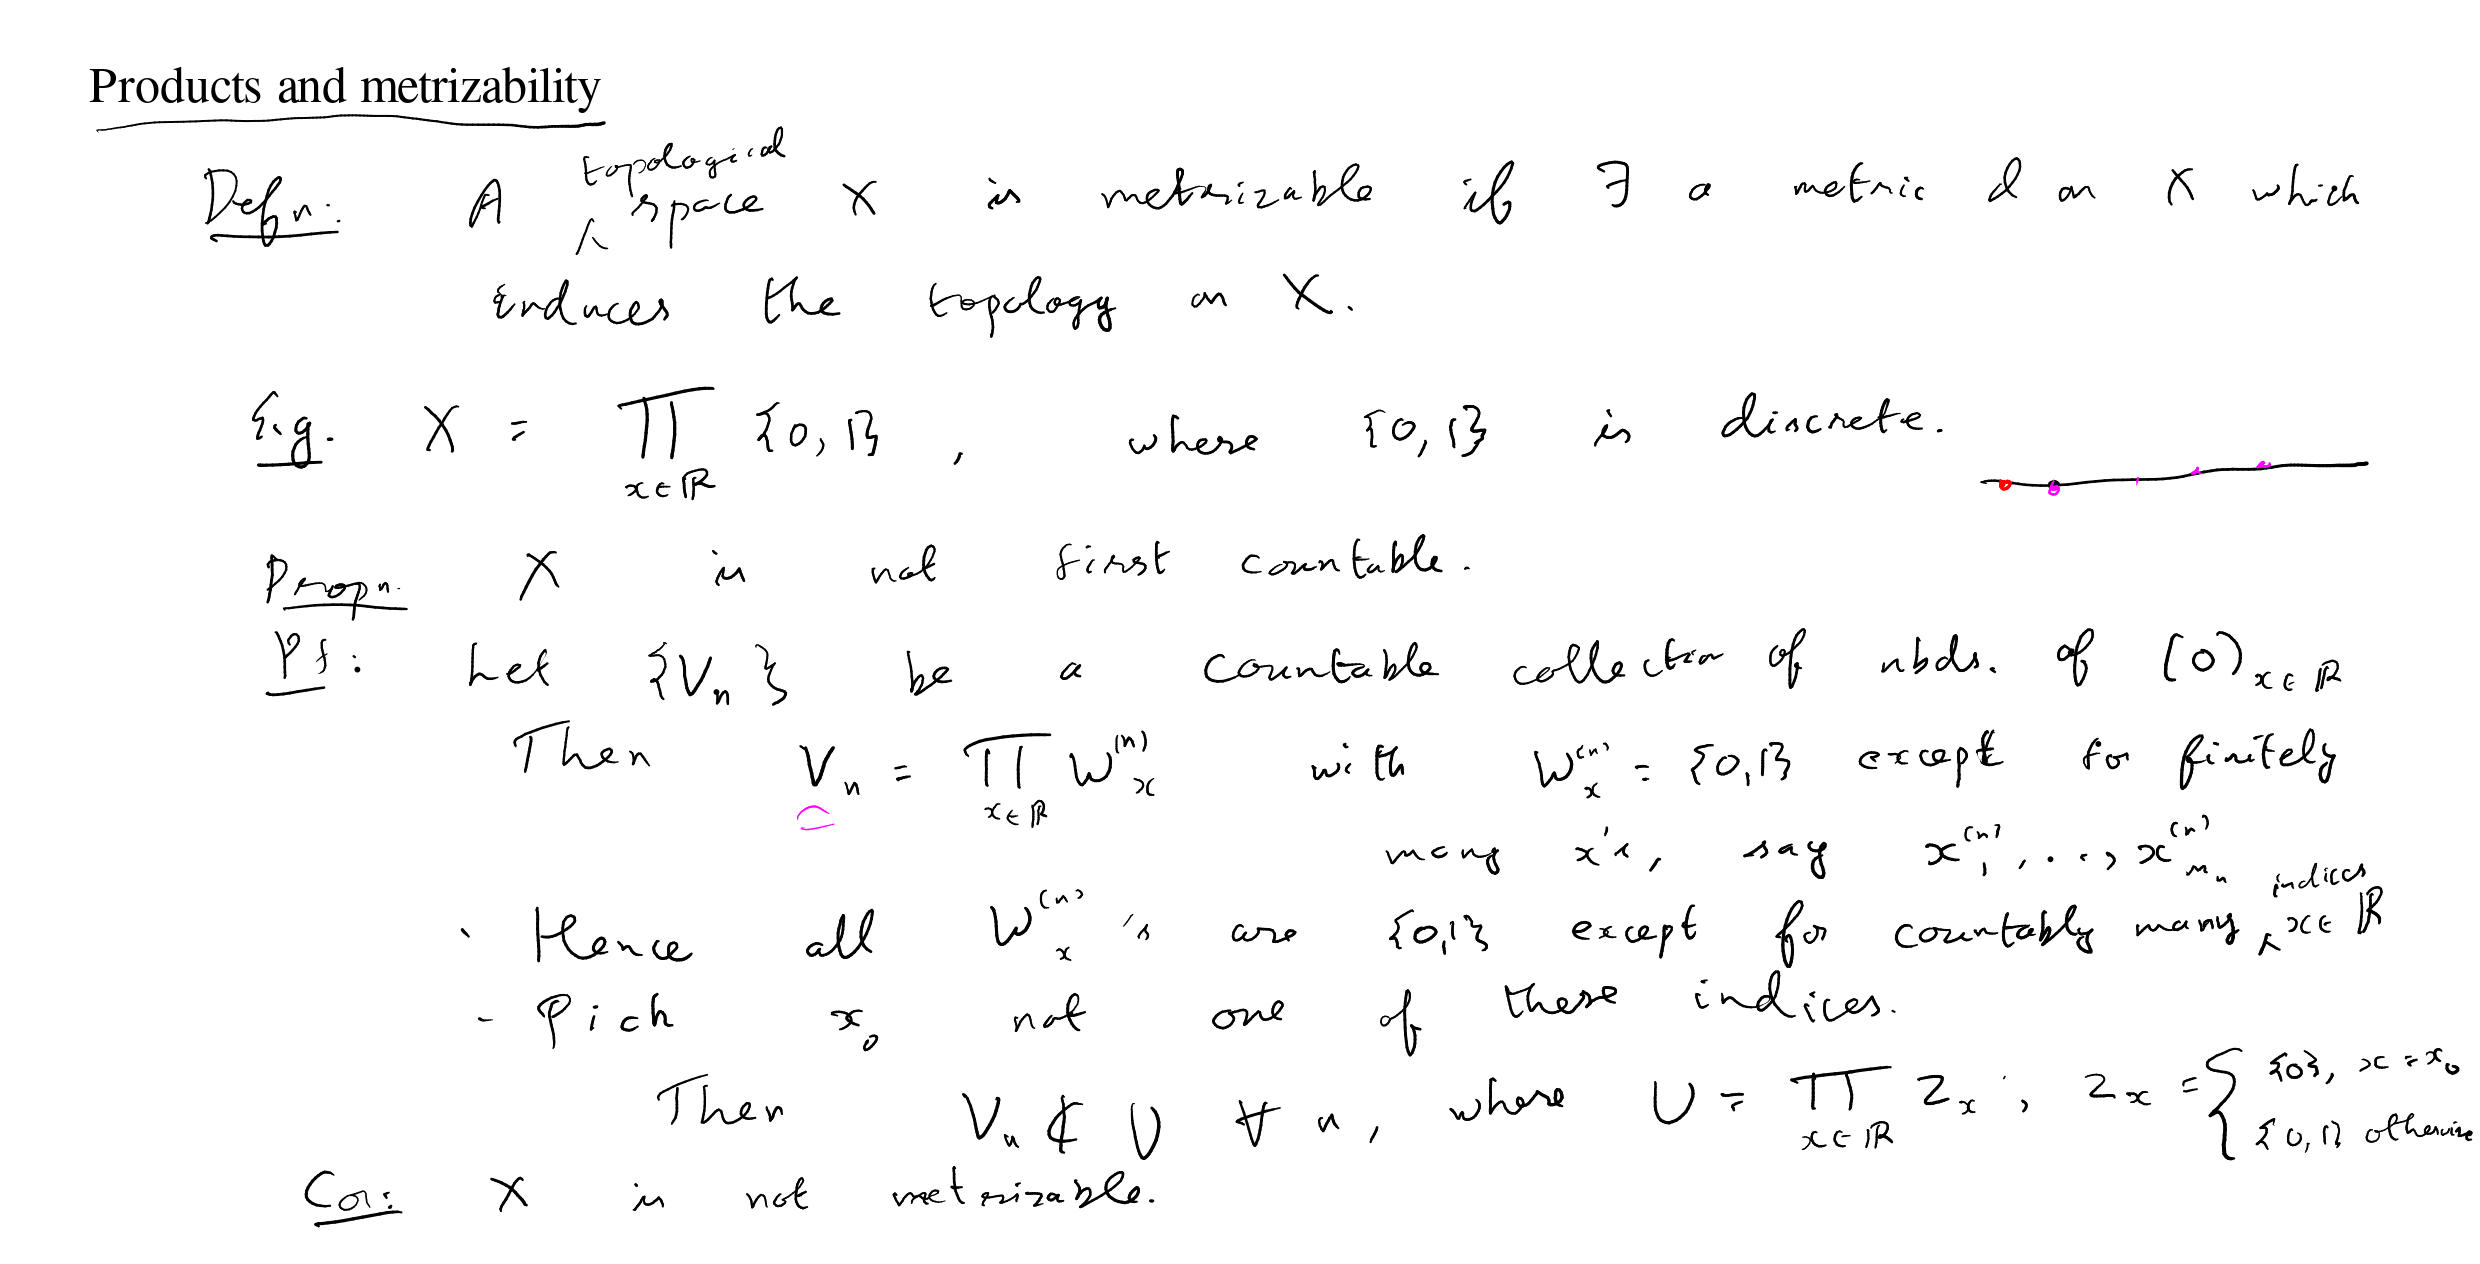 Products and metrizability
Defn: A topological space X is metrizable if ∃ a metric d on X which
induces the topology on X.
E.g. X = ∏_{x∈ℝ} {0,1}, where {0,1} is discrete.
Propn. X is not first countable.
Pf: Let {V_n} be a countable collection of nbds. of (0)_{x∈ℝ}
Then V_n = ∏_{x∈ℝ} W_x^{(n)} with W_x^{(n)} = {0,1} except for finitely
many x's, say x_1^{(n)}, ..., x_{m_n}^{(n)}
· Hence all W_x^{(n)}'s are {0,1} except for countably many indices x∈ℝ
- Pick x_0 not one of these indices.
Then V_n ⊄ U ∀ n, where U = ∏_{x∈ℝ} Z_x, Z_x = { {0}, x = x_0
{0,1} otherwise
Cor: X is not metrizable.